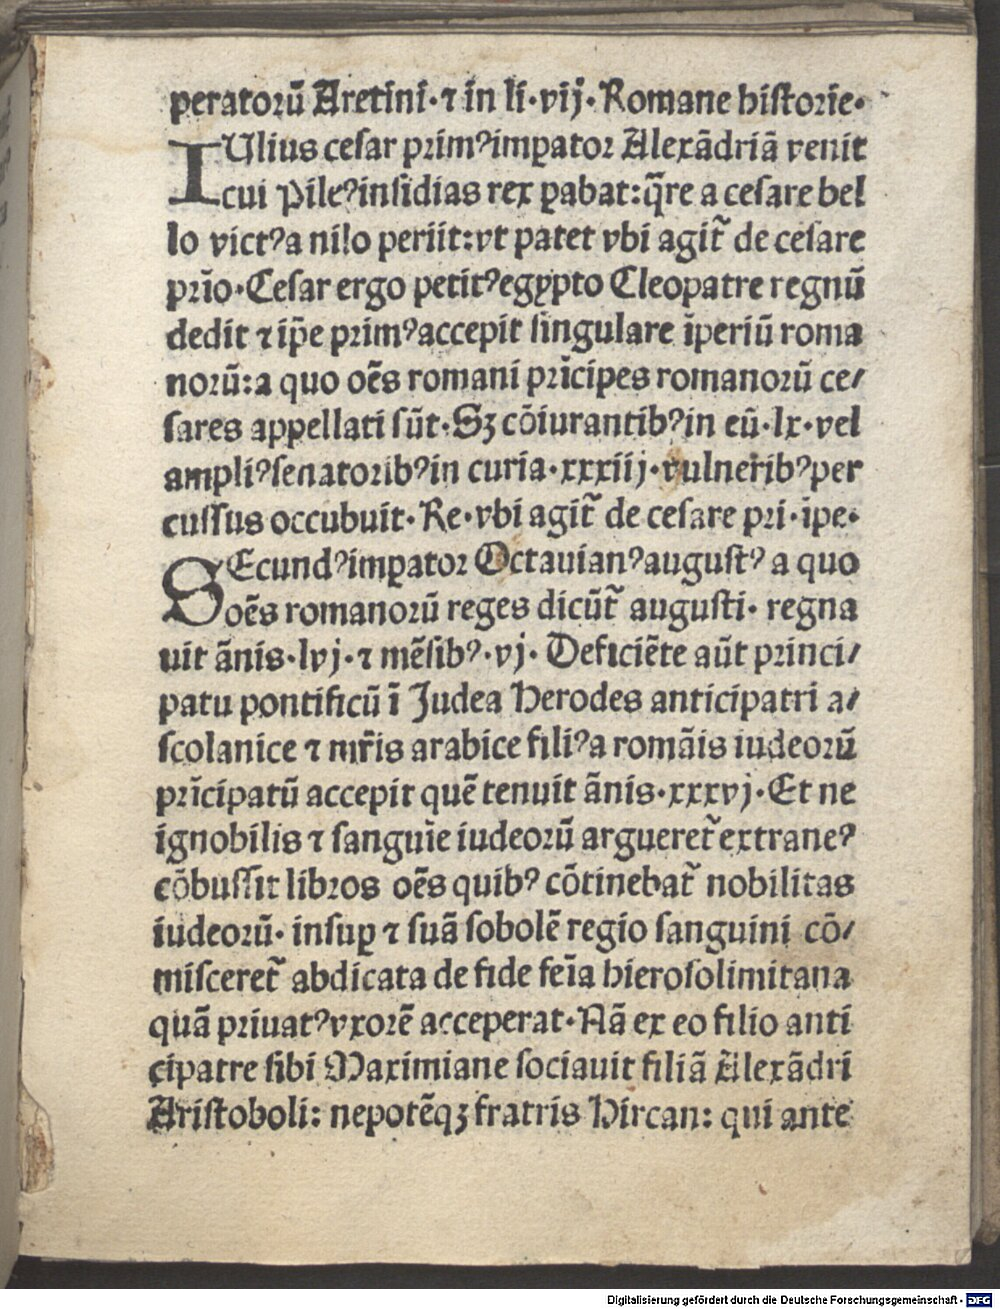 peratorū Aretini·⁊ in li·vij·Romane historie·
IUlius cesar primꝰimꝑator Alexādriā venit
cui Pileꝰinsidias rex ꝑabat:q̄re a cesare bel
lo victꝰa nilo periit:vt patet vbi agit̃ de cesare
prīo·Cesar ergo petitꝰegypto Cleopatre regnū
dedit ⁊ ip̄e primꝰaccepit singulare īperiū roma
norū:a quo oēs romani prīcipes romanorū ce/
sares appellati sūt·Sꝫ cōiurantibꝰin eū·lx·vel
ampliꝰsenatoribꝰin curia·xxxiij·vulneribꝰper
cussus occubuit·Re·vbi agit̃ de cesare pri·ipe·
SEcundꝰimꝑator Octauianꝰaugustꝰ a quo
oēs romanorū reges dicūt̃ augusti· regna
uit ānis·lvj·⁊ mēsibꝰ·vj· Deficiēte aūt princi/
patu pontificū ī Judea Herodes anticipatri a/
scolanice ⁊ mr̄is arabice filiꝰa romāis iudeorū
prīcipatū accepit quē tenuit ānis·xxxvj·Et ne
ignobilis ⁊ sanguīe iudeorū argueret̃ extraneꝰ
cōbussit libros oēs quibꝰ cōtinebat̃ nobilitas
iudeorū· insuꝑ ⁊ suā sobolē regio sanguini cō/
misceret̃ abdicata de fide feīa hierosolimitana
quā priuatꝰvxorē acceperat·Nā ex eo filio anti
cipatre sibi Maximiane sociauit filiā Alexādri
Aristoboli: nepotēqꝫ fratris Hircan: qui ante
Digitalisierung gefördert durch die Deutsche Forschungsgemeinschaft - DFG